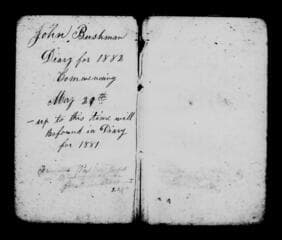 John Bushman
Diary for 1882
Commencing
May 29th
- up to this time will
be found in Diary
for 1881